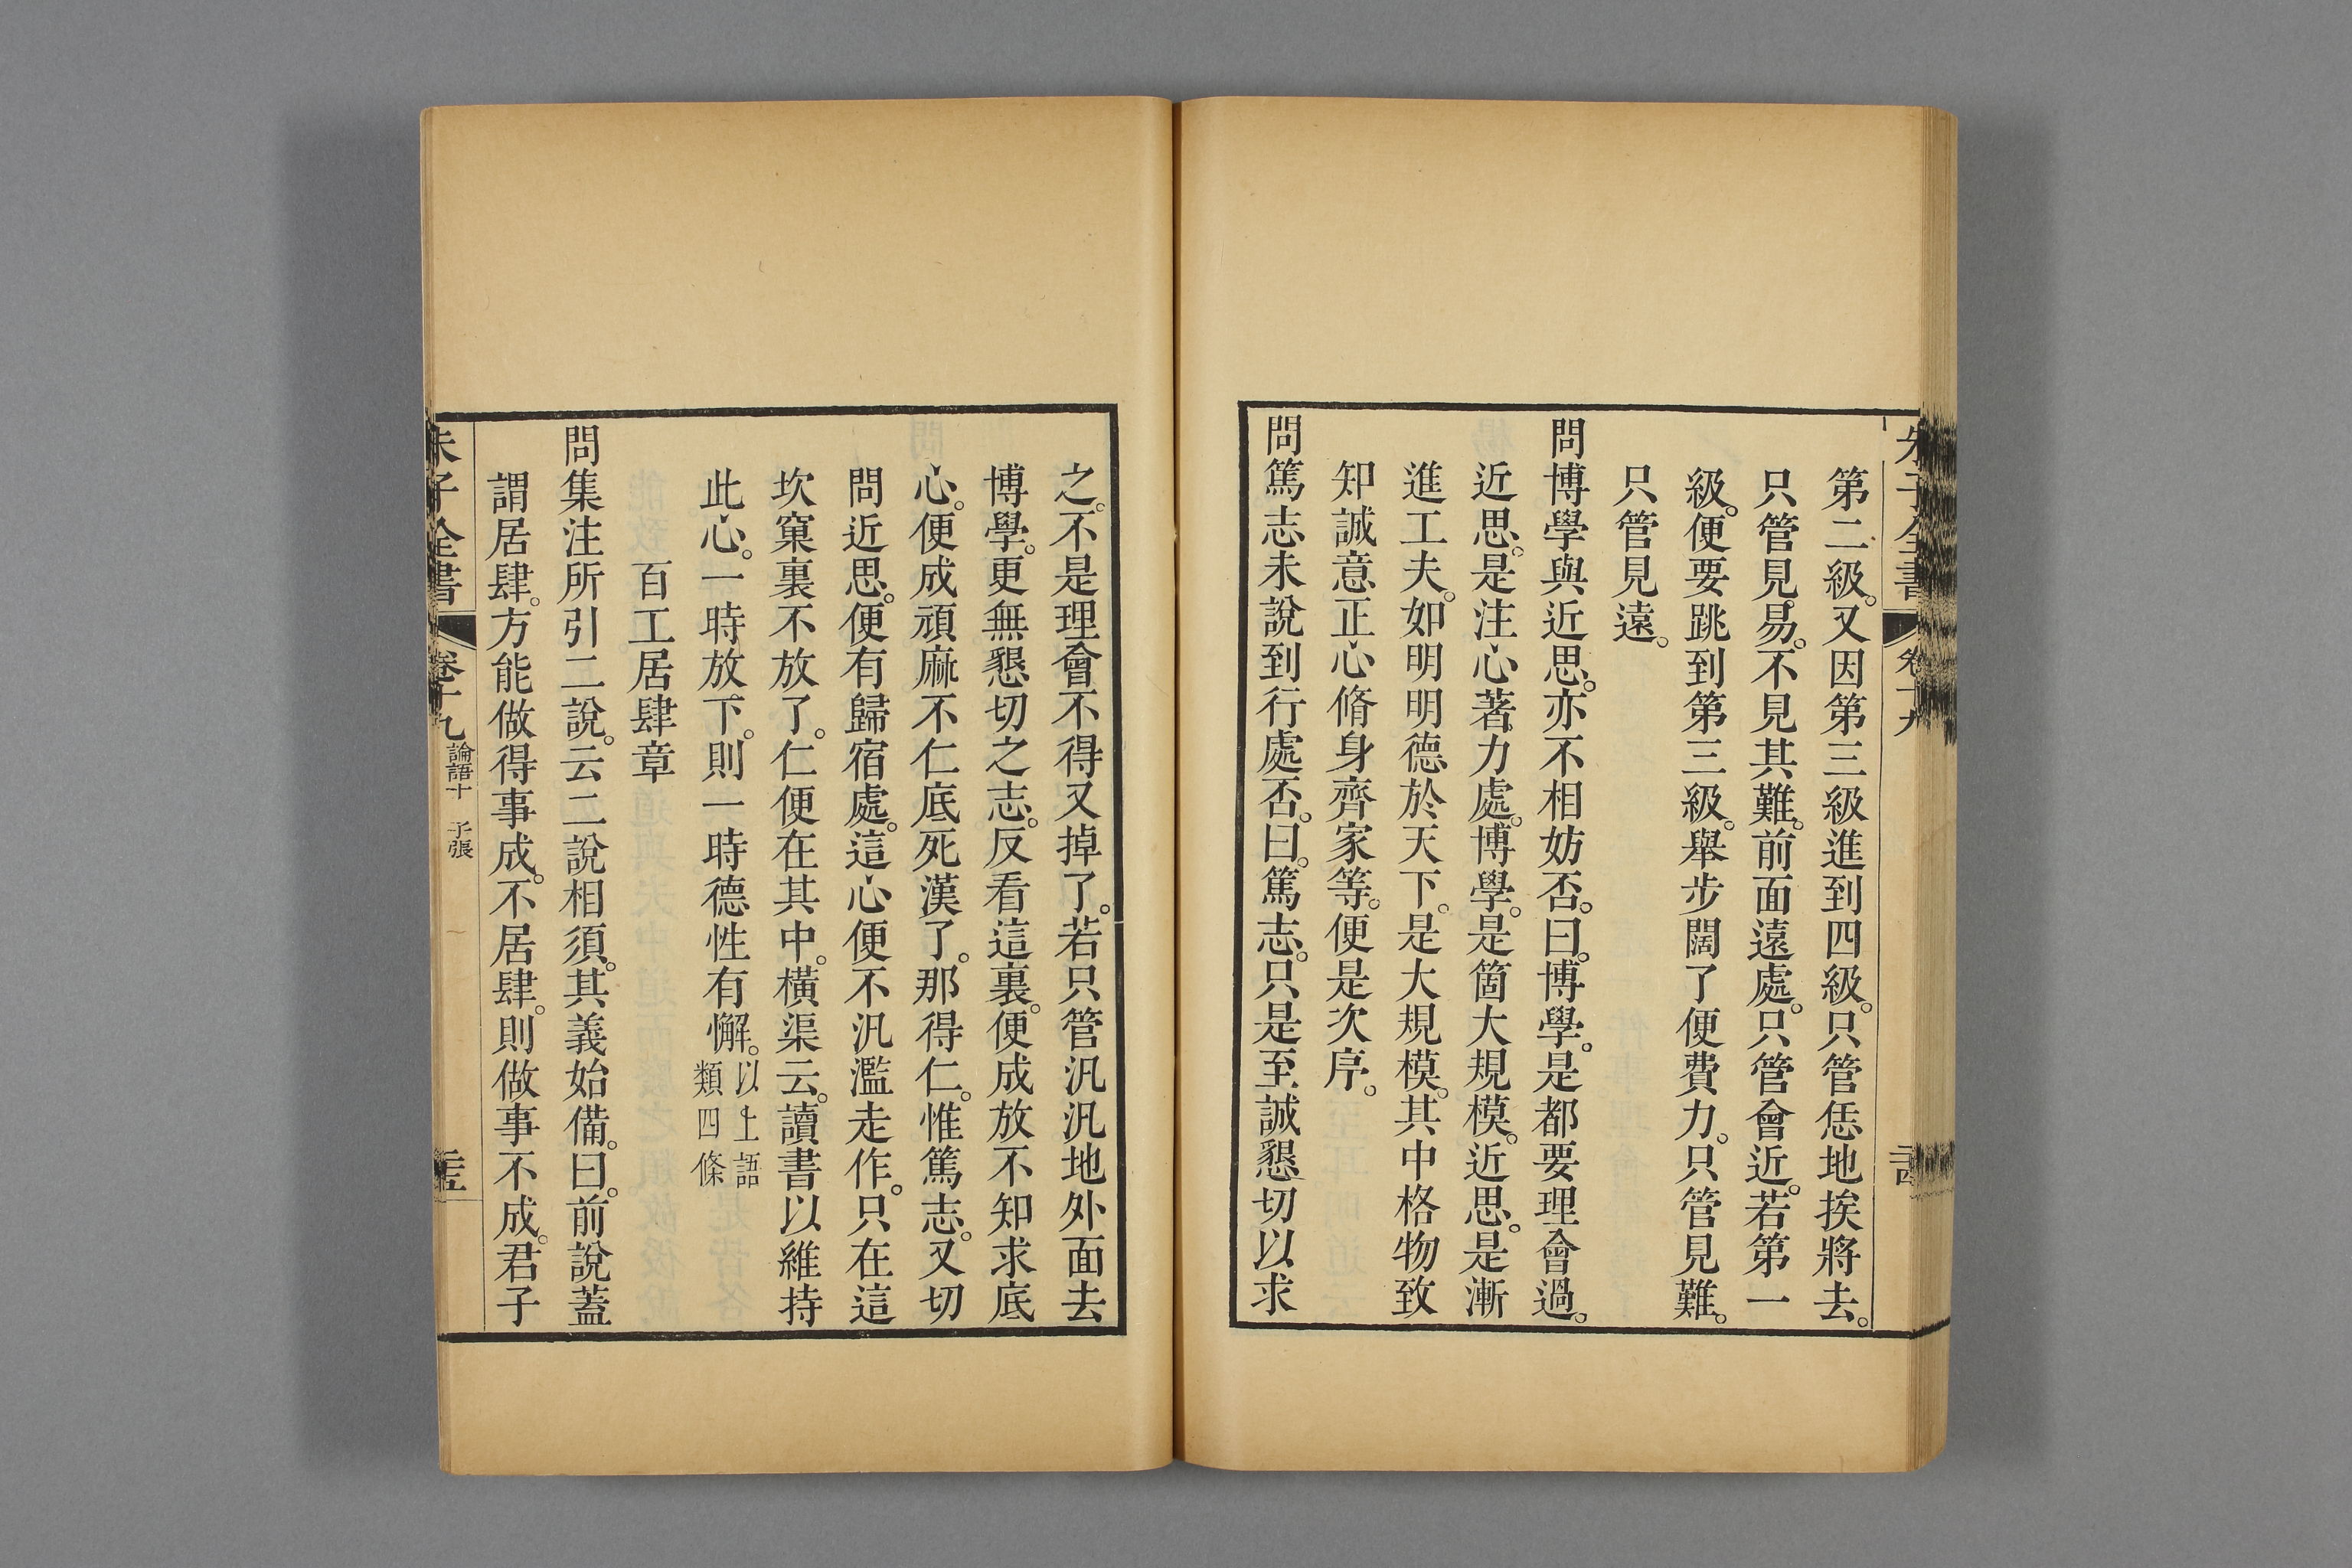 朱子全書 卷十九
第二級。又因第三級進到四級。只管恁地挨將去。
只管見易。不見其難。前面遠處。只管會近。若第一
級。便要跳到第三級。舉步闊了便費力。只管見難。
只管見遠。
問博學與近思。亦不相妨否。曰。博學。是都要理會過。
近思。是注心著力處。博學。是箇大規模。近思。是漸
進工夫。如明明德於天下。是大規模。其中格物致
知誠意正心脩身齊家等。便是次序。
問篤志未說到行處否。曰。篤志。只是至誠懇切以求
之。不是理會不得又掉了。若只管汎汎地外面去
博學。更無懇切之志。反看這裏。便成放不知求底
心。便成頑麻不仁底死漢了。那得仁。惟篤志。又切
問近思。便有歸宿處。這心便不汎濫走作。只在這
坎窠裏不放了。仁便在其中。橫渠云。讀書以維持
此心。一時放下。則一時德性有懈。以上語
類四條
百工居肆章
問集注所引二說。云二說相須。其義始備。曰。前說蓋
謂居肆。方能做得事成。不居肆。則做事不成。君子
朱子全書 卷十九 論語十 子張